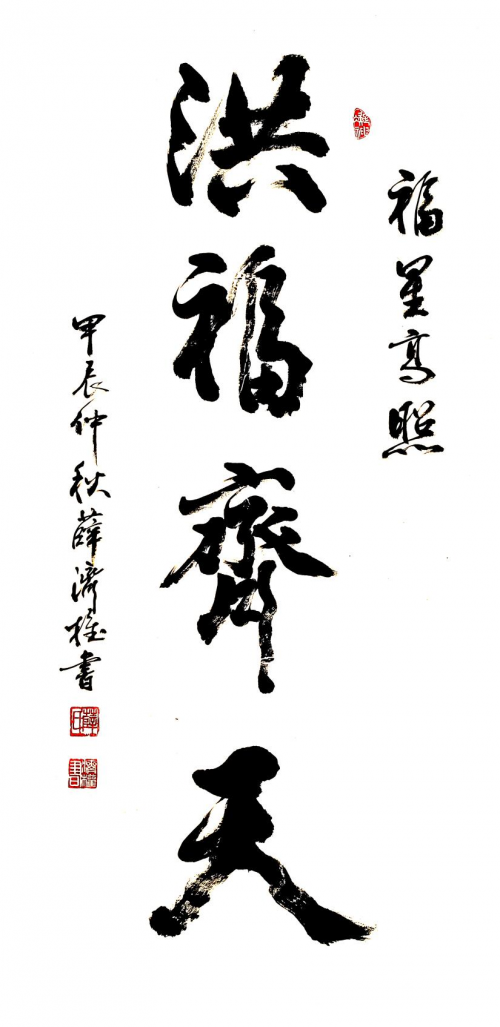 福星高照
洪福齊天
甲辰仲秋薛濟權書